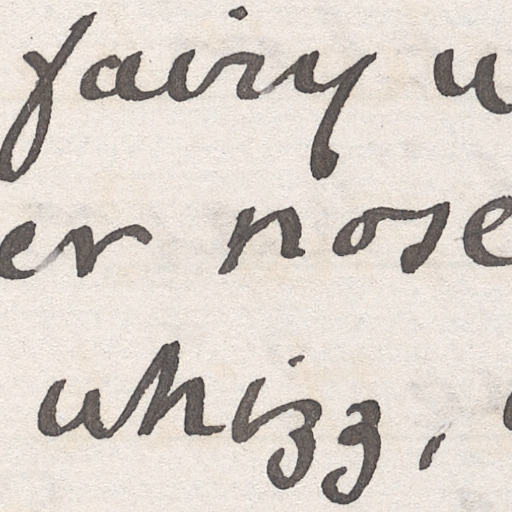 fairy
er nose
whizz,